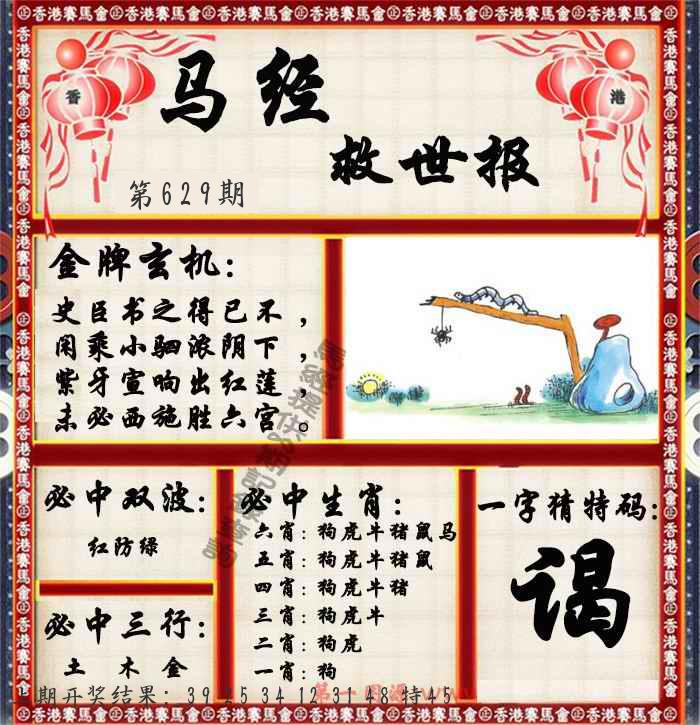 香港賽馬會
香 港
马经
救世报
第629期
金牌玄机：
史臣书之得已不，
闲乘小驷浓阴下，
紫牙宣响出红莲，
未必西施胜六宫。
必中双波：
红防绿
必中三行：
土 木 金
必中生肖：
六肖：狗虎牛猪鼠马
五肖：狗虎牛猪鼠
四肖：狗虎牛猪
三肖：狗虎牛
二肖：狗虎
一肖：狗
一字猜特码：
谒
期开奖结果：39 25 34 12 31 48 特45